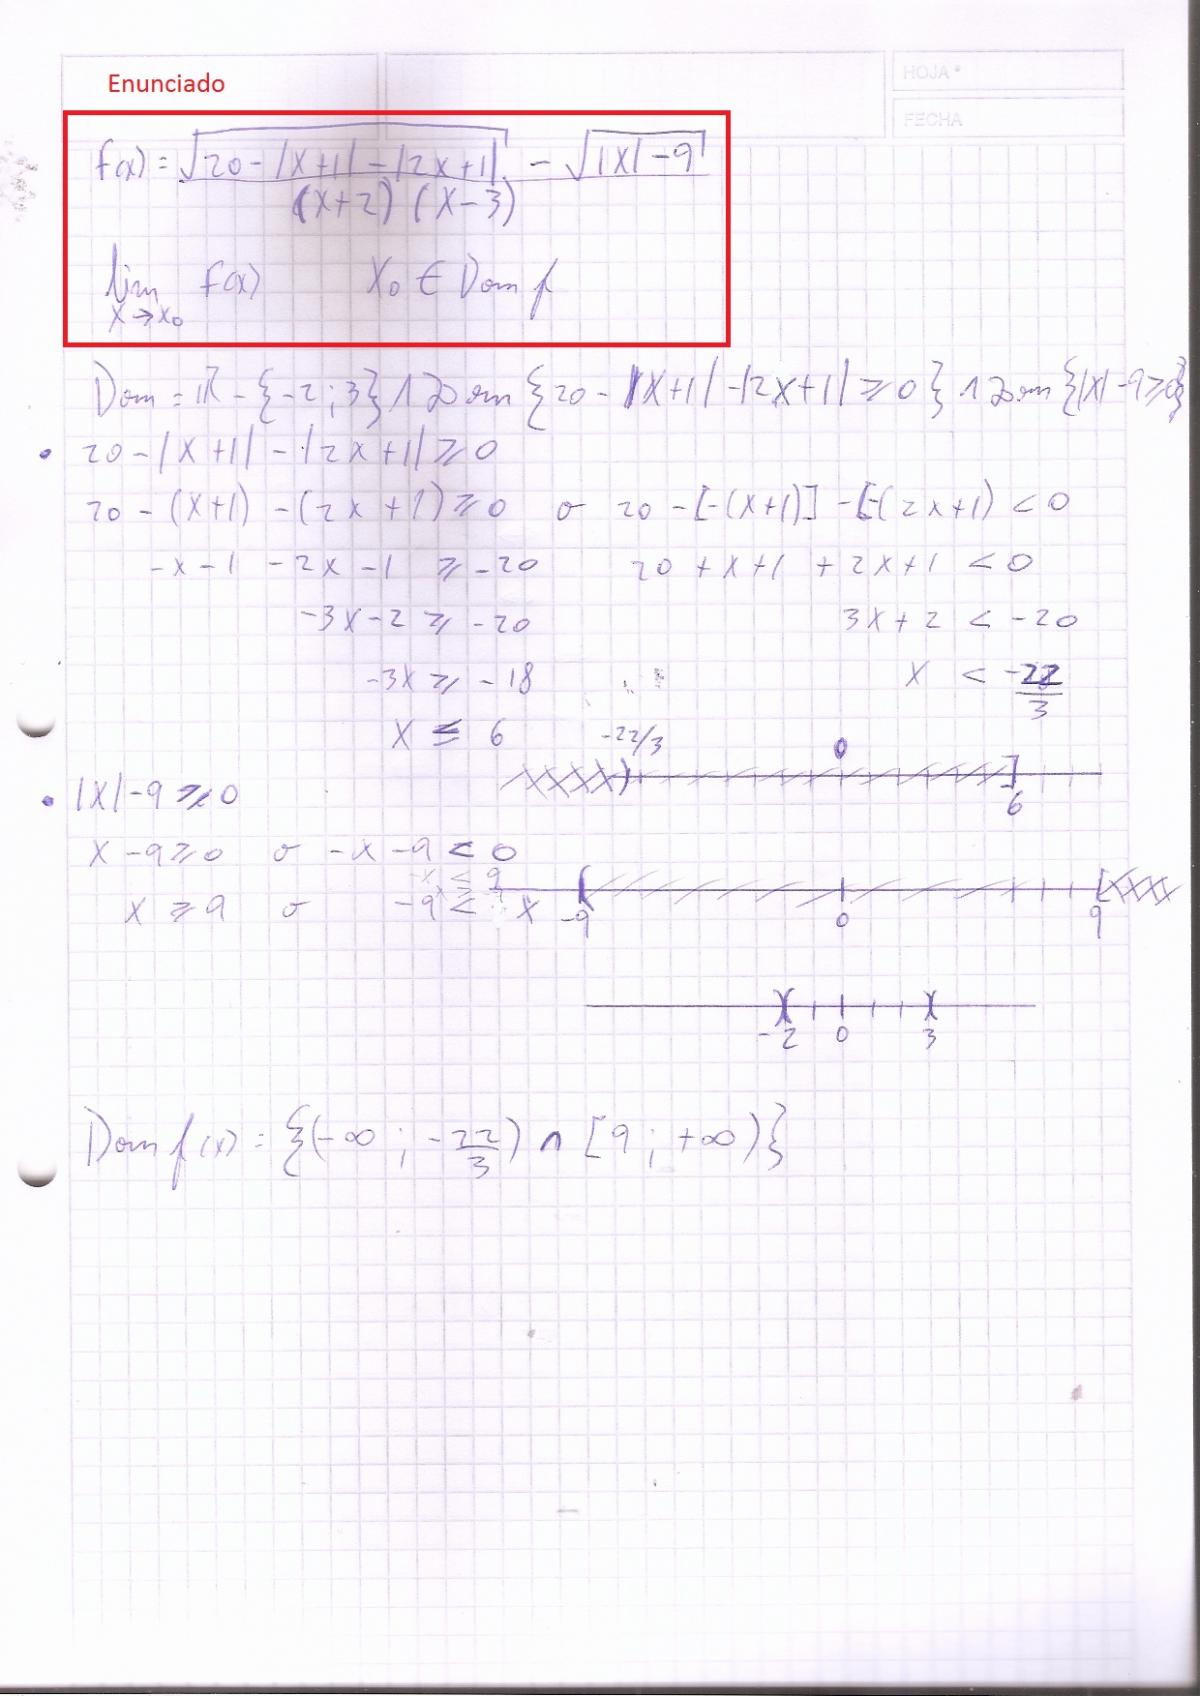 Enunciado
HOJA *
FECHA
f(x) = √(20 - |x+1| - |2x+1|) - √(|x| - 9)
(x+2) (x-3)
lim f(x) x₀ ∈ Dom f
x→x₀
Dom = ℝ - {-2 ; 3} ∧ Dom {20 - |x+1| - |2x+1| ≥ 0} ∧ Dom {|x| - 9 ≥ 0}
• 20 - |x+1| - |2x+1| ≥ 0
20 - (x+1) - (2x+1) ≥ 0 o 20 - [-(x+1)] - [-(2x+1) < 0
-x - 1 - 2x - 1 ≥ -20 20 + x+1 + 2x+1 < 0
-3x - 2 ≥ -20 3x + 2 < -20
-3x ≥ -18 x < -22/3
x ≤ 6 -22/3 0
6
• |x| - 9 ≥ 0
x - 9 ≥ 0 o -x - 9 < 0
-x < 9
x ≥ 9 o -9 < x -9 0 9
-2 0 3
Dom f(x) = {(-∞ ; -22/3) ∩ [9 ; +∞)}